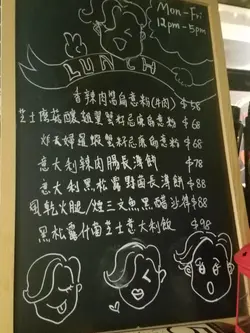 Mon-Fri
12pm-5pm
LUNCH
香辣肉醬扁意粉(牛肉) $58
芝士磨菇釀蝦蟹籽忌廉扁意粉 $68
炸大蝦蟹籽忌廉扁意粉 $68
意大利辣肉腸長薄餅 $78
意大利黑松露野菌長薄餅 $88
風乾火腿/煙三文魚黑醋沙律 $88
黑松露什菌芝士意大利飯 $98